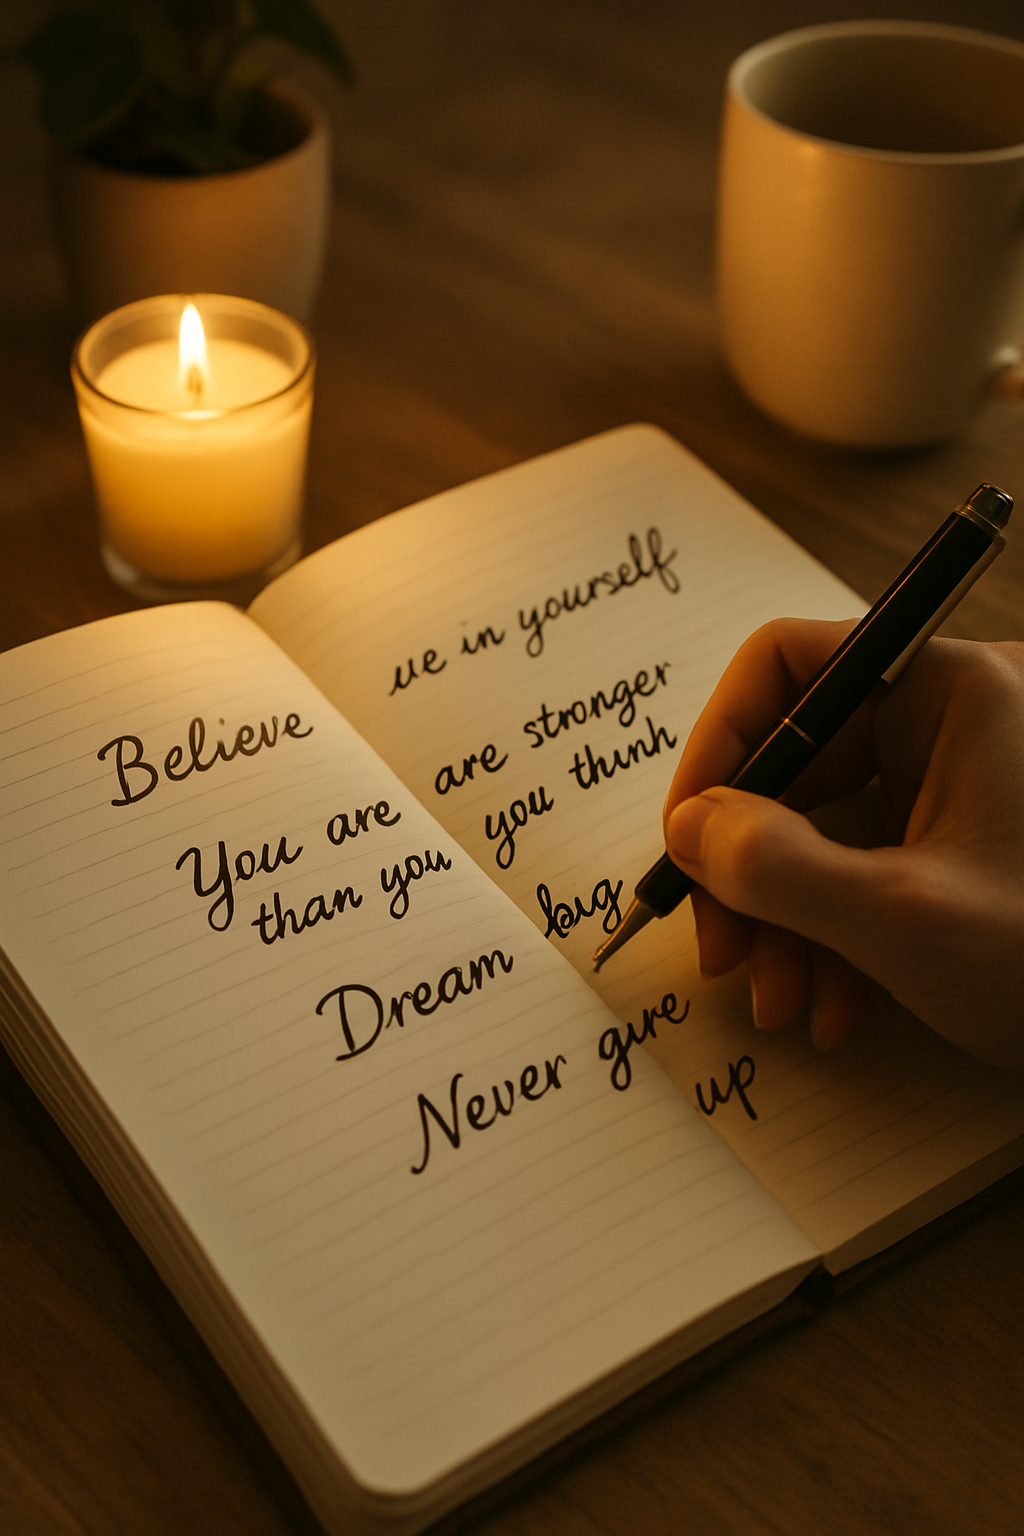 Believe
ue in yourself
You are
are stronger
than you
you thınh
Dream
big
Never gıre
up